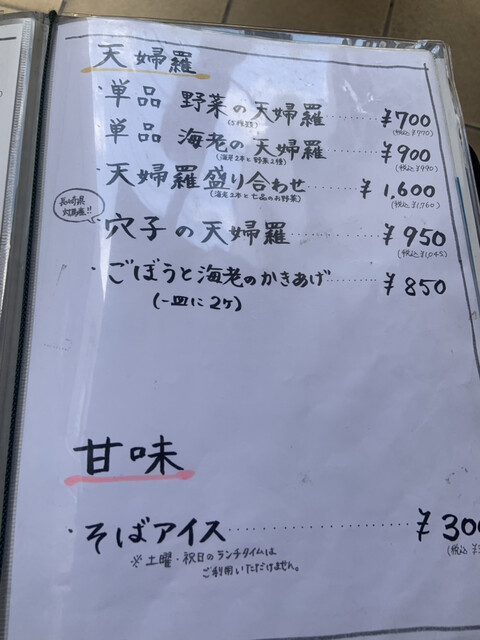 天婦羅
・単品 野菜の天婦羅……… ¥700
(5種類) (税込¥770)
単品 海老の天婦羅……… ¥900
(海老2本と野菜2種) (税込¥990)
・天婦羅盛り合わせ…… ¥1,600
(海老2本と七品のお野菜) (税込¥1,760)
長崎県
対馬産!!
穴子の天婦羅……… ¥950
(税込¥1045)
・ごぼうと海老のかきあげ……… ¥850
(一皿に2ケ)
甘味
・そばアイス……… ¥300
(税込
※土曜・祝日のランチタイムは
ご利用いただけません。